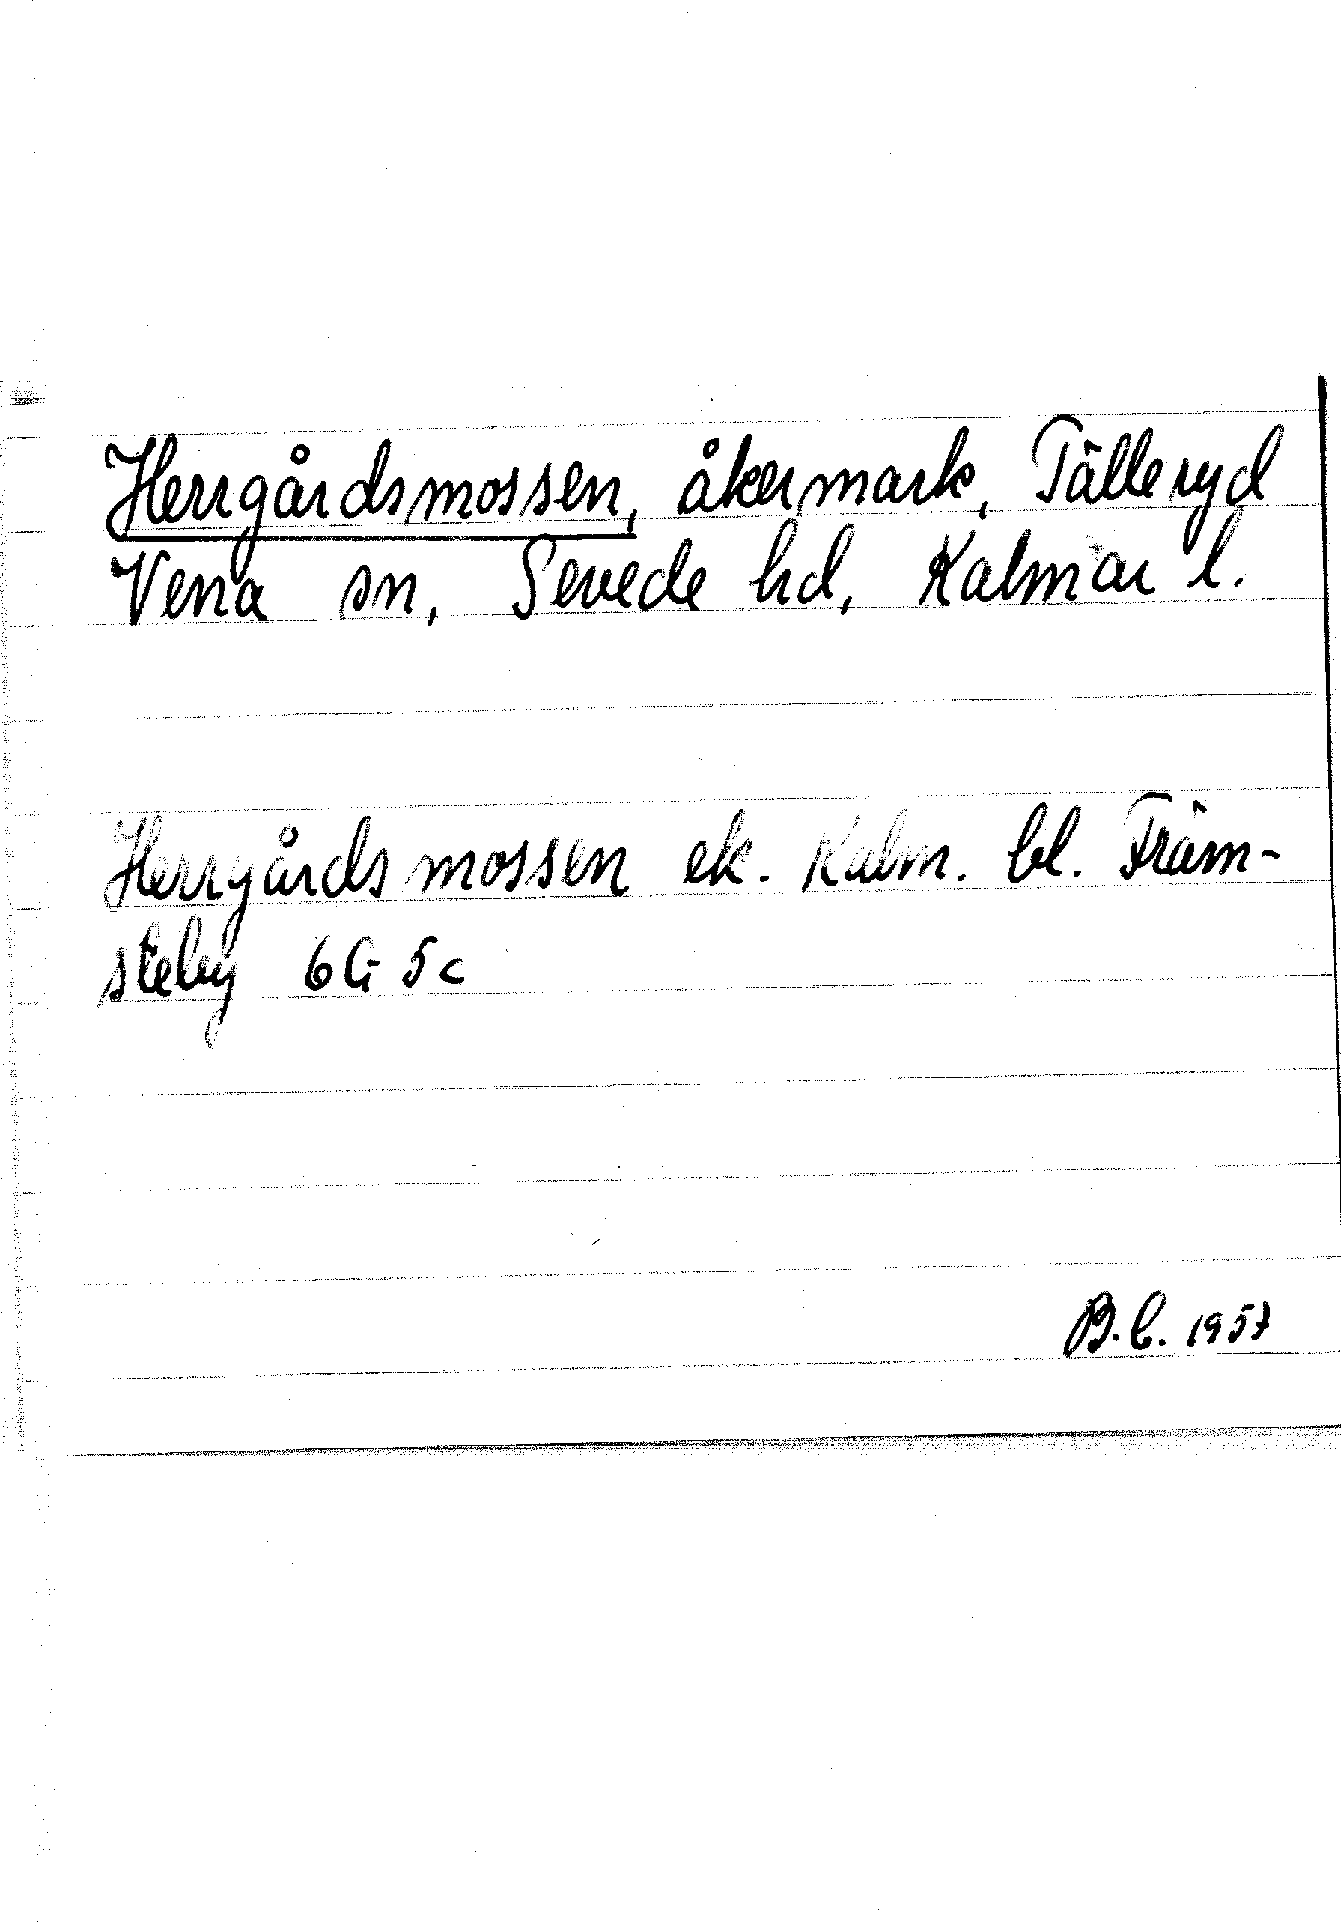 Herrgårdsmossen, åkermark, Tälleryd
Vena sn, Sevede hd, Kalmar l.
Herrgårdsmossen ek. Kalm. bl. Främ-
steby 6 G 5 c
B.C. 1957